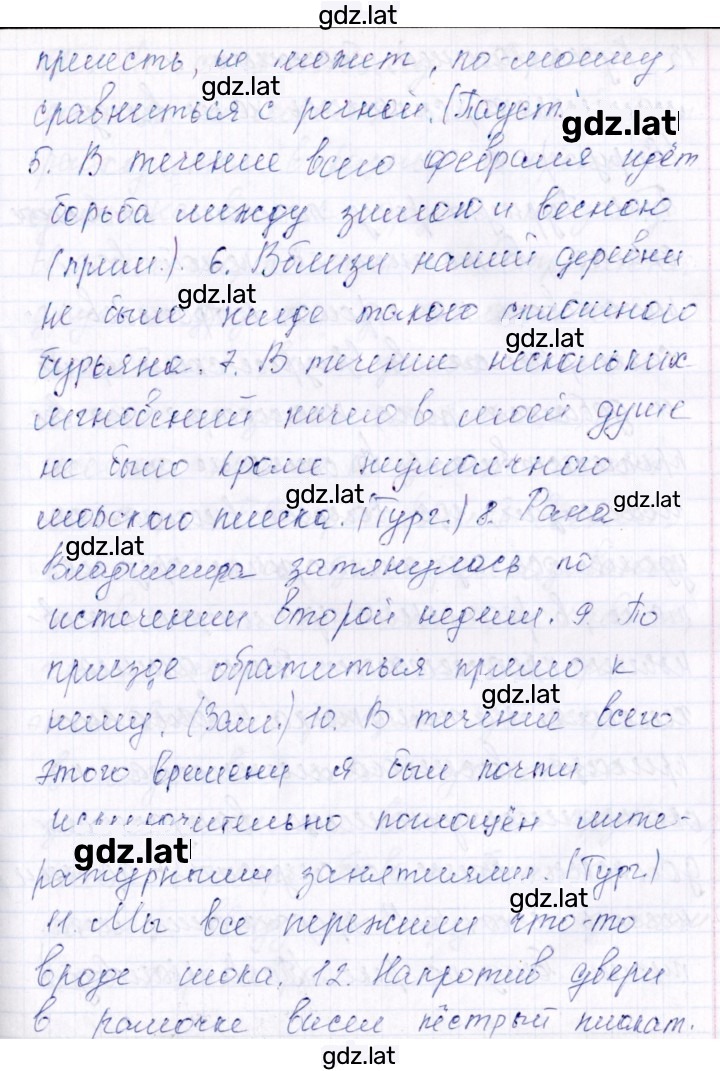 gdz.lat
прелесть, не может, по-моему,
gdz.lat
сравниться с речной. (Пауст.
gdz.lat
5. В течение всего февраля идёт
борьба между зимою и весною
(прим.). 6. Вблизи нашей деревни
gdz.lat
не было нигде такого сплошного
gdz.lat
бурьяна. 7. В течение нескольких
мгновений ничего в моей душе
не было кроме немолчного
gdz.lat
gdz.lat
морского плеска. (Тург.) 8. Рана
gdz.lat
Владимира затянулась по
истечении второй недели. 9. По
приезде обратиться прямо к
gdz.lat
нему. (Зам.) 10. В течение всего
этого времени я был почти
исключительно поглощён лите-
gdz.lat
ратурными занятиями. (Тург.)
gdz.lat
11. Мы все пережили что-то
вроде шока. 12. Напротив двери
в рамочке висел пёстрый плакат.
gdz.lat